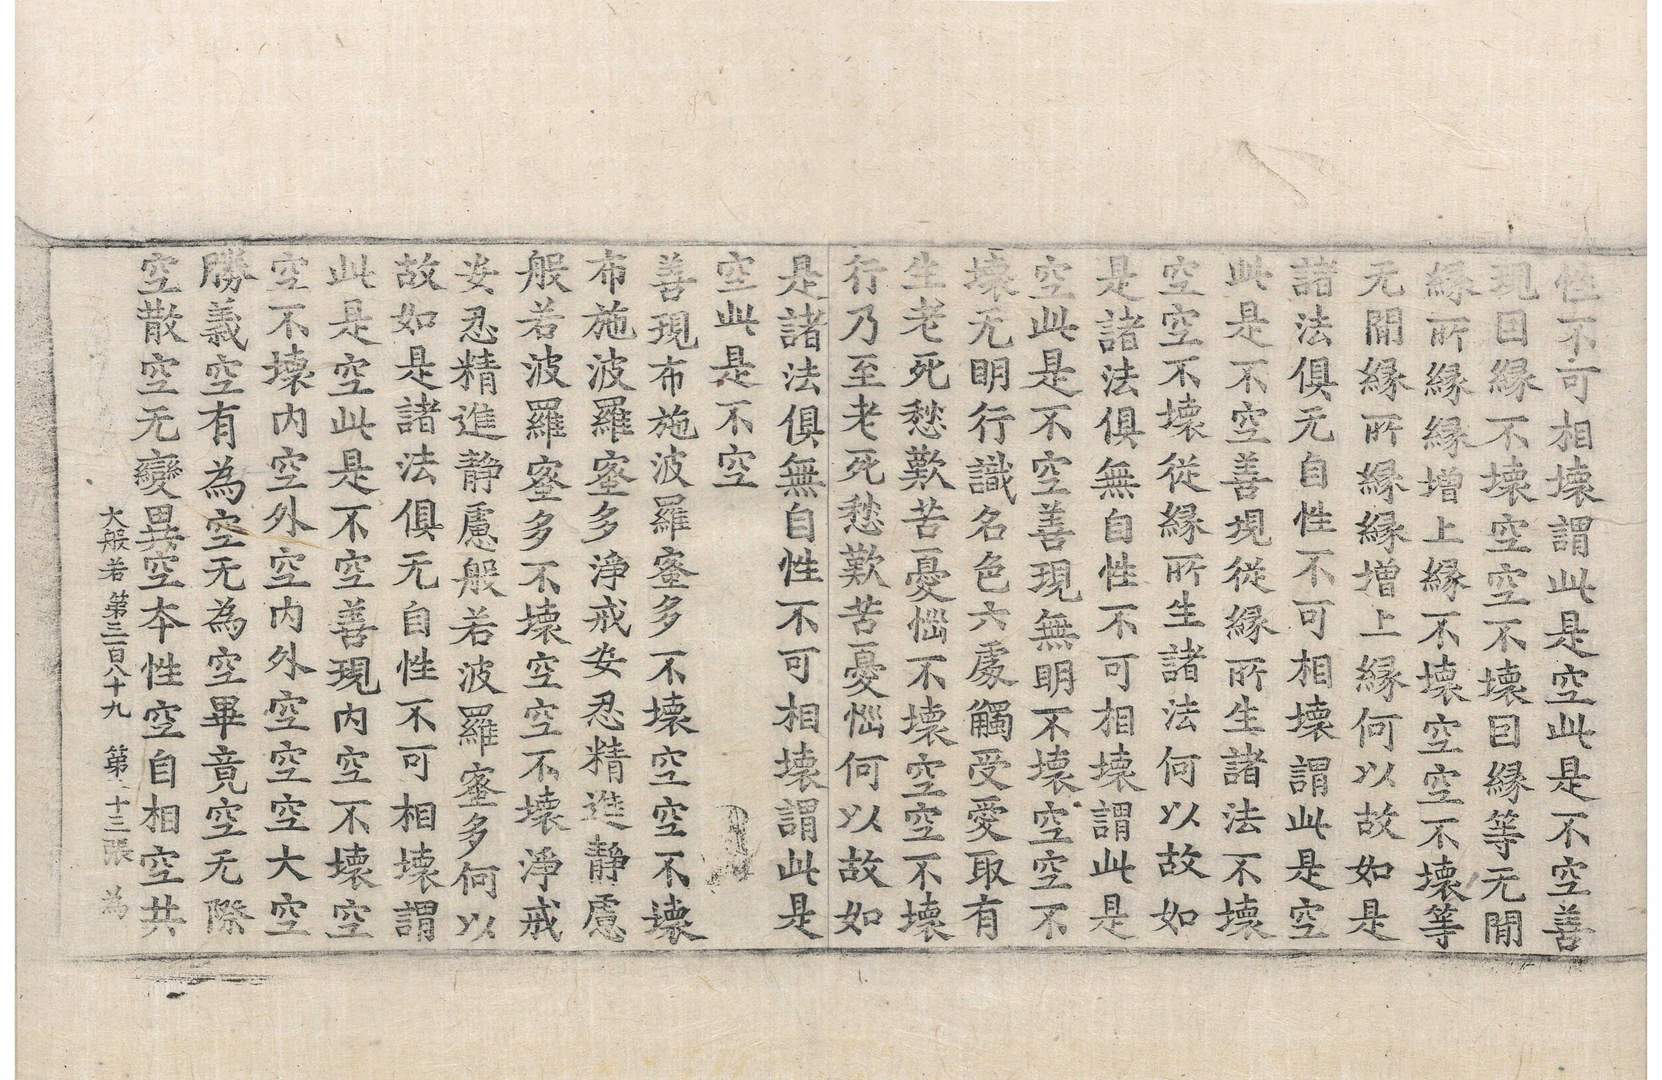 性不可相壞謂此是空此是不空善
現因縁不壞空空不壞因縁等无間
縁所縁縁增上縁不壞空空不壞等
无間縁所縁縁增上縁何以故如是
諸法俱无自性不可相壞謂此是空
此是不空善現從縁所生諸法不壞
空空不壞從縁所生諸法何以故如
是諸法俱無自性不可相壞謂此是
空此是不空善現無明不壞空空不
壞无明行識名色六處觸受愛取有
生老死愁歎苦憂惱不壞空空不壞
行乃至老死愁歎苦憂惱何以故如
是諸法俱無自性不可相壞謂此是
空此是不空
善現布施波羅蜜多不壞空空不壞
布施波羅蜜多淨戒安忍精進靜慮
般若波羅蜜多不壞空空不壞淨戒
安忍精進靜慮般若波羅蜜多何以
故如是諸法俱无自性不可相壞謂
此是空此是不空善現內空不壞空
空不壞內空外空內外空空空大空
勝義空有為空无為空畢竟空无際
空散空无變異空本性空自相空共
大般若 第三百八十九 第十三張 為